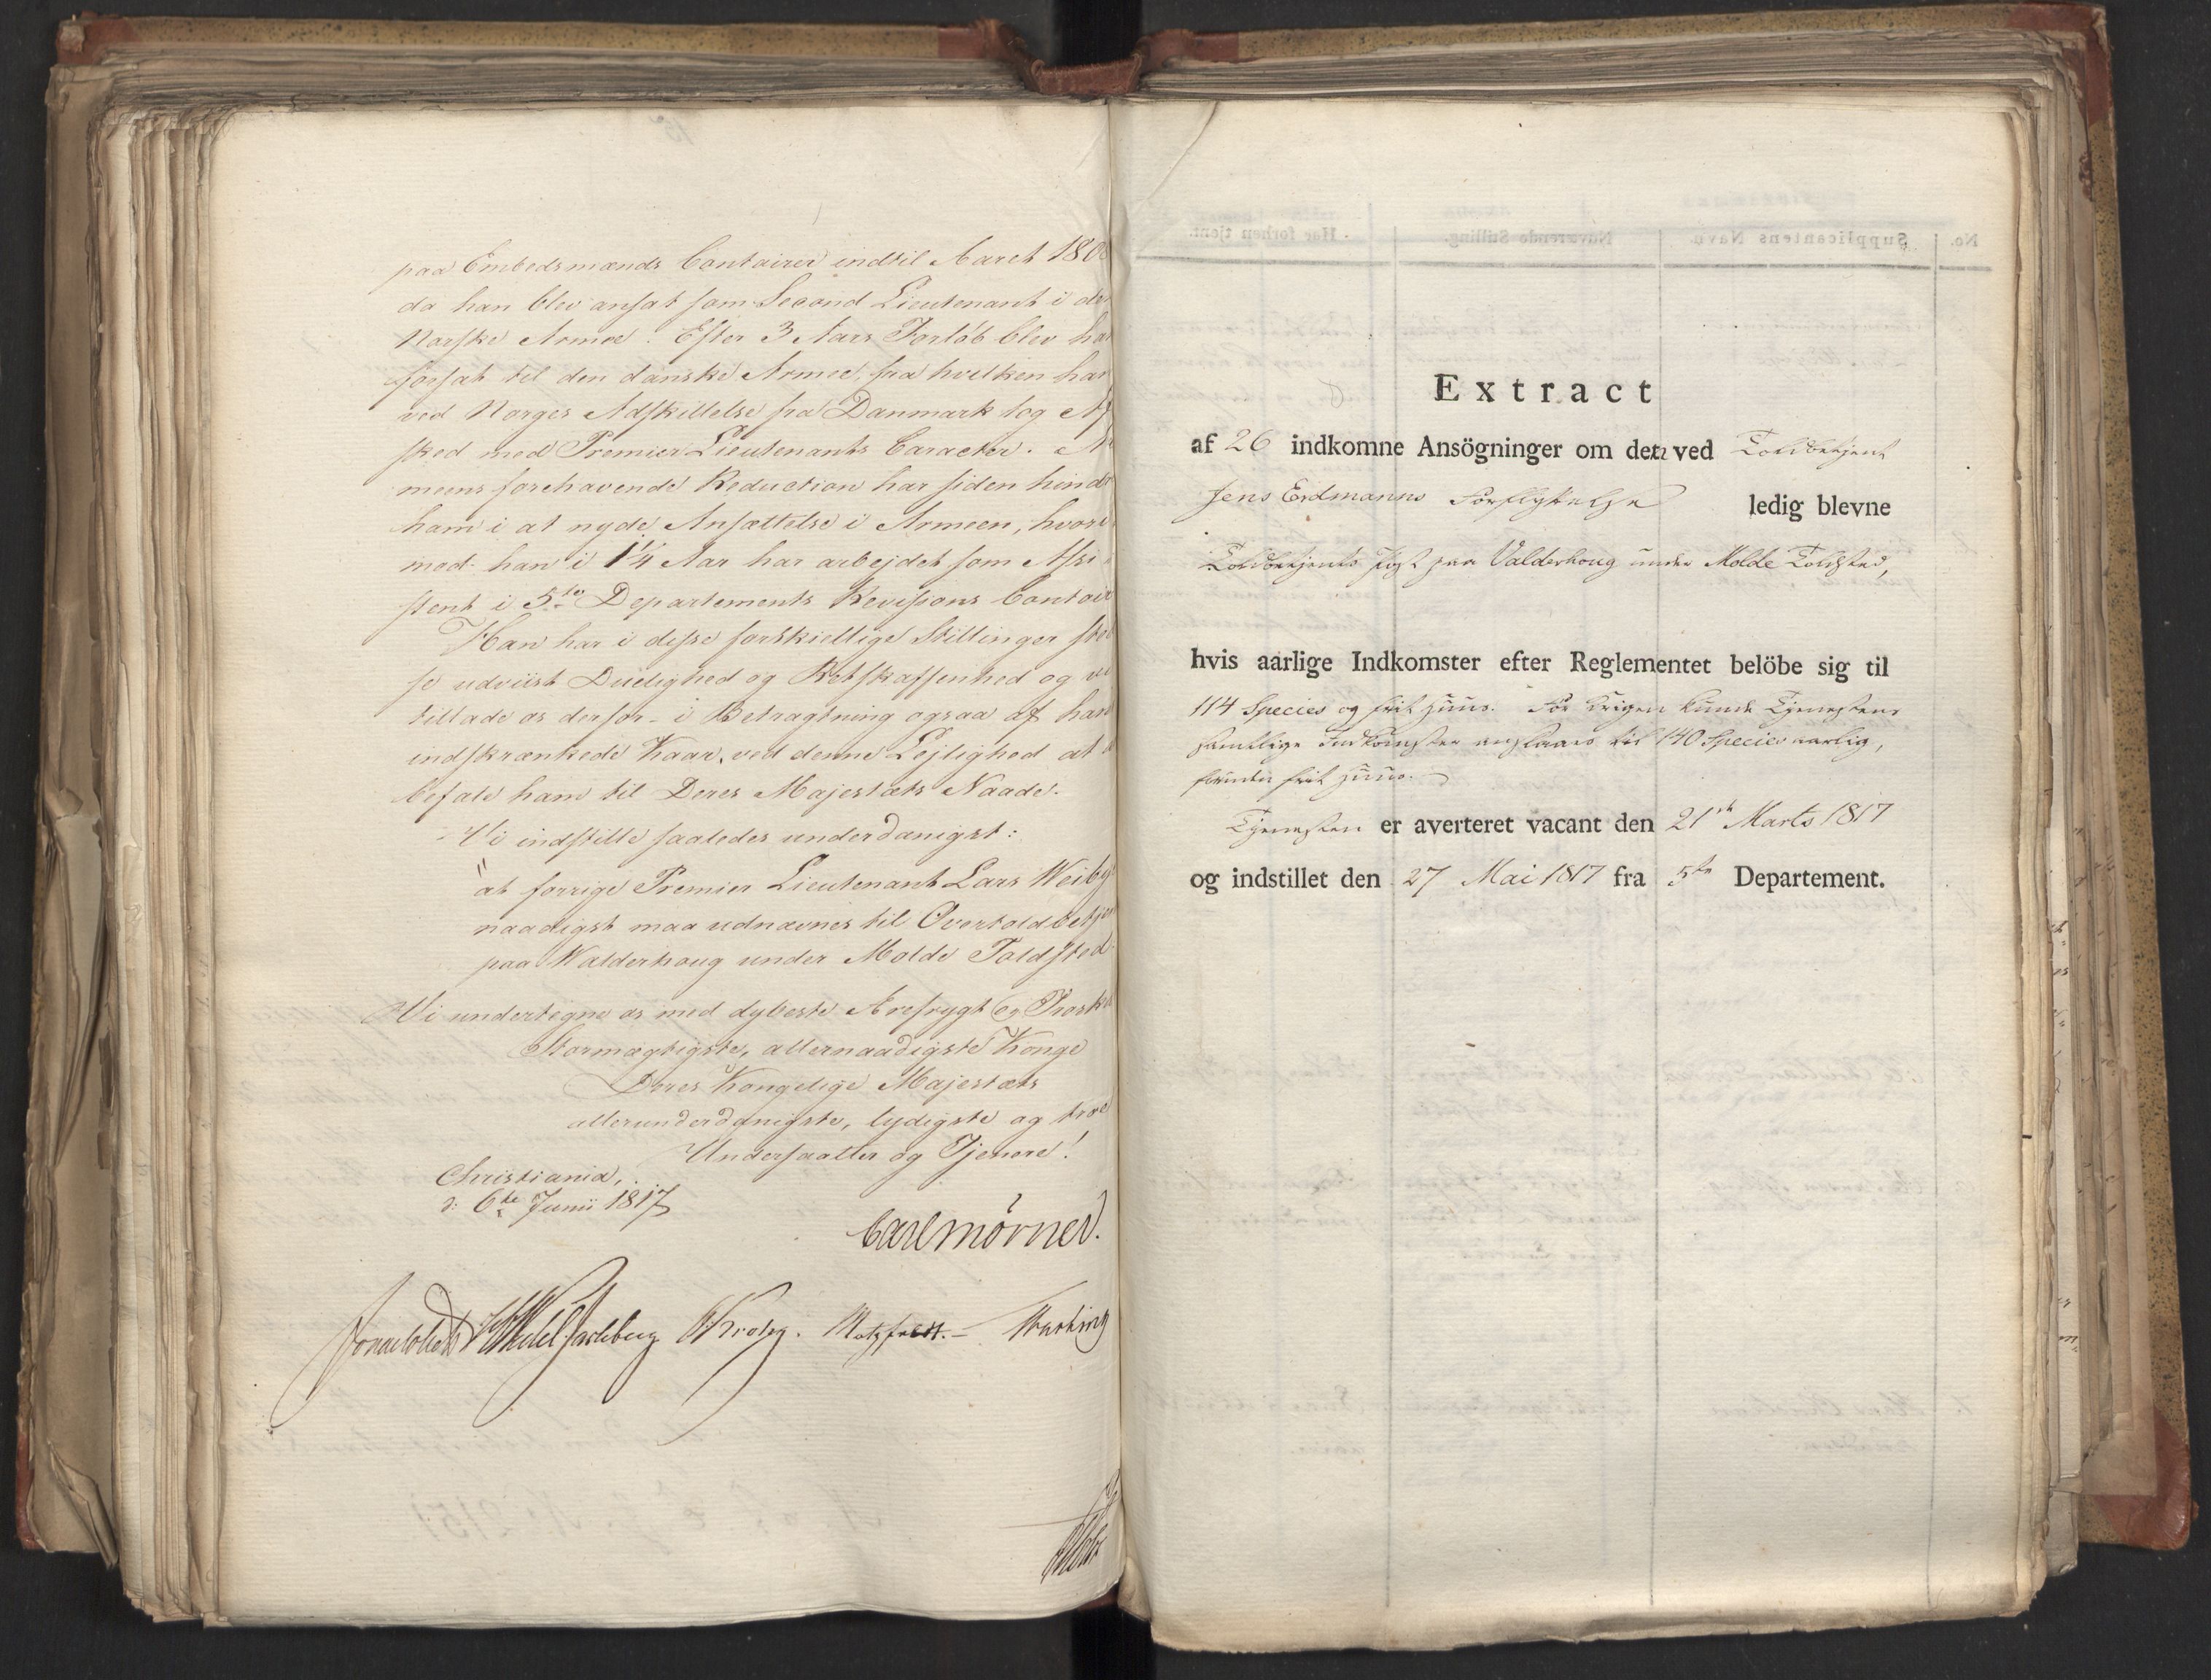 paa Embedsmænds Contoirer indtil Aaret 1808
da han blev ansat som Second Lieutenant i de
Norske Armee. Efter 3 Aars Forløb blev ha
forsat til den danske Armee, fra hvilken han
ved Norges Adskillelse fra Danmark tog Af
sked med Premier Lieutenants Caracter. A
meens forehavende Reduction har siden hindr
ham i at nyde Ansættelse i Armeen, hvori
mod han i 1¼ Aar har arbejdet som Assi
stent i 5te Departements Revisions Contoir
Han har i disse forskiellige Stillinger sted
se udviist Duelighed og Retskaffenhed og vi
tillade os derfor - i Betragtning ogsaa af hans
indskrænkede Kaar, ved denne Lejlighed at
befale ham til Deres Majestæts Naade.
Vi indstille saaledes underdanigst:
"at forrige Premier Lieutenant Lars Weiby
naadigst maa udnævnes til Overtoldbetje
paa Walderhoug under Molde Toldsted
Vi undertegne os med dybeste Ærefrygt og Troska
Stormægtigste, allernaadigste Konge
Deres Kongelige Majestæts
allerunderdanigste, lydigste og troe
Undersaatter og Tjenere!
Christiania,
d: 6te Junii 1817
Carl Mörner.
Jonas Collett HWedel Jarlsberg CKrohg. Motzfeldt. -
Extract
af 26 indkomne Ansögninger om den ved Toldbetjent
Jens Erdmanns Forflyttelse ledig blevne
Toldbetjents Post paa Valderhoug under Molde Toldsted,
hvis aarlige Indkomster efter Reglementet belöbe sig til
114 Species og frit Huus. Før Krigen kunde Tjenestens
samtlige Indkomster anslaaes til 140 Species aarlig,
foruden frit Huus.
Tjenesten er averteret vacant den 21de Marts 1817
og indstillet den 27 Mai 1817 fra 5te Departement.
No. Supplicantens Navn. Nuværende Stilling. Hor forhen tjent.